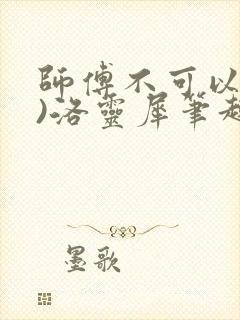 師傅不可以
)洛靈犀筆趣
墨歌